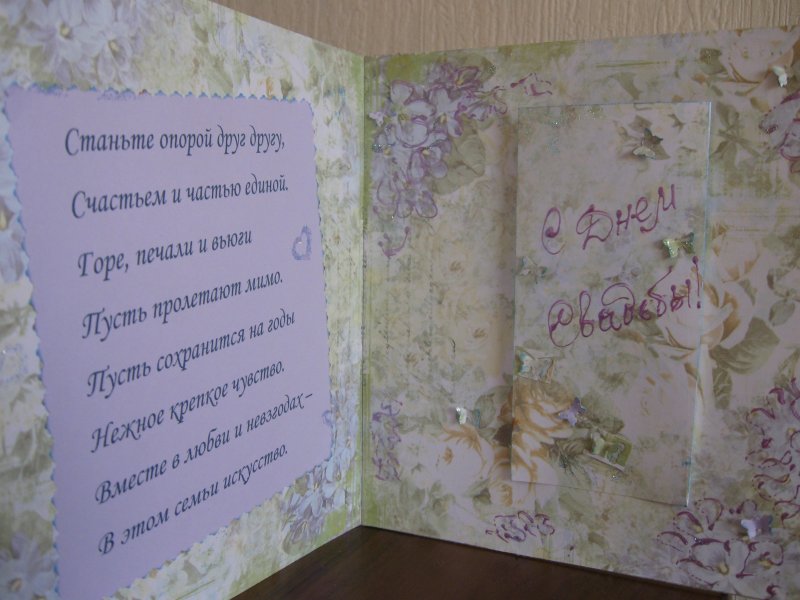 Станьте опорой друг другу,
Счастьем и частью единой.
Горе, печали и вьюги
Пусть пролетают мимо.
Пусть сохранится на годы
Нежное крепкое чувство.
Вместе в любви и невзгодах –
В этом семьи искусство.
С Днем
Свадьбы!